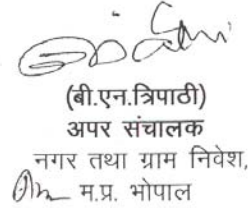 (बी.एन.त्रिपाठी)
अपर संचालक
नगर तथा ग्राम निवेश,
म.प्र. भोपाल